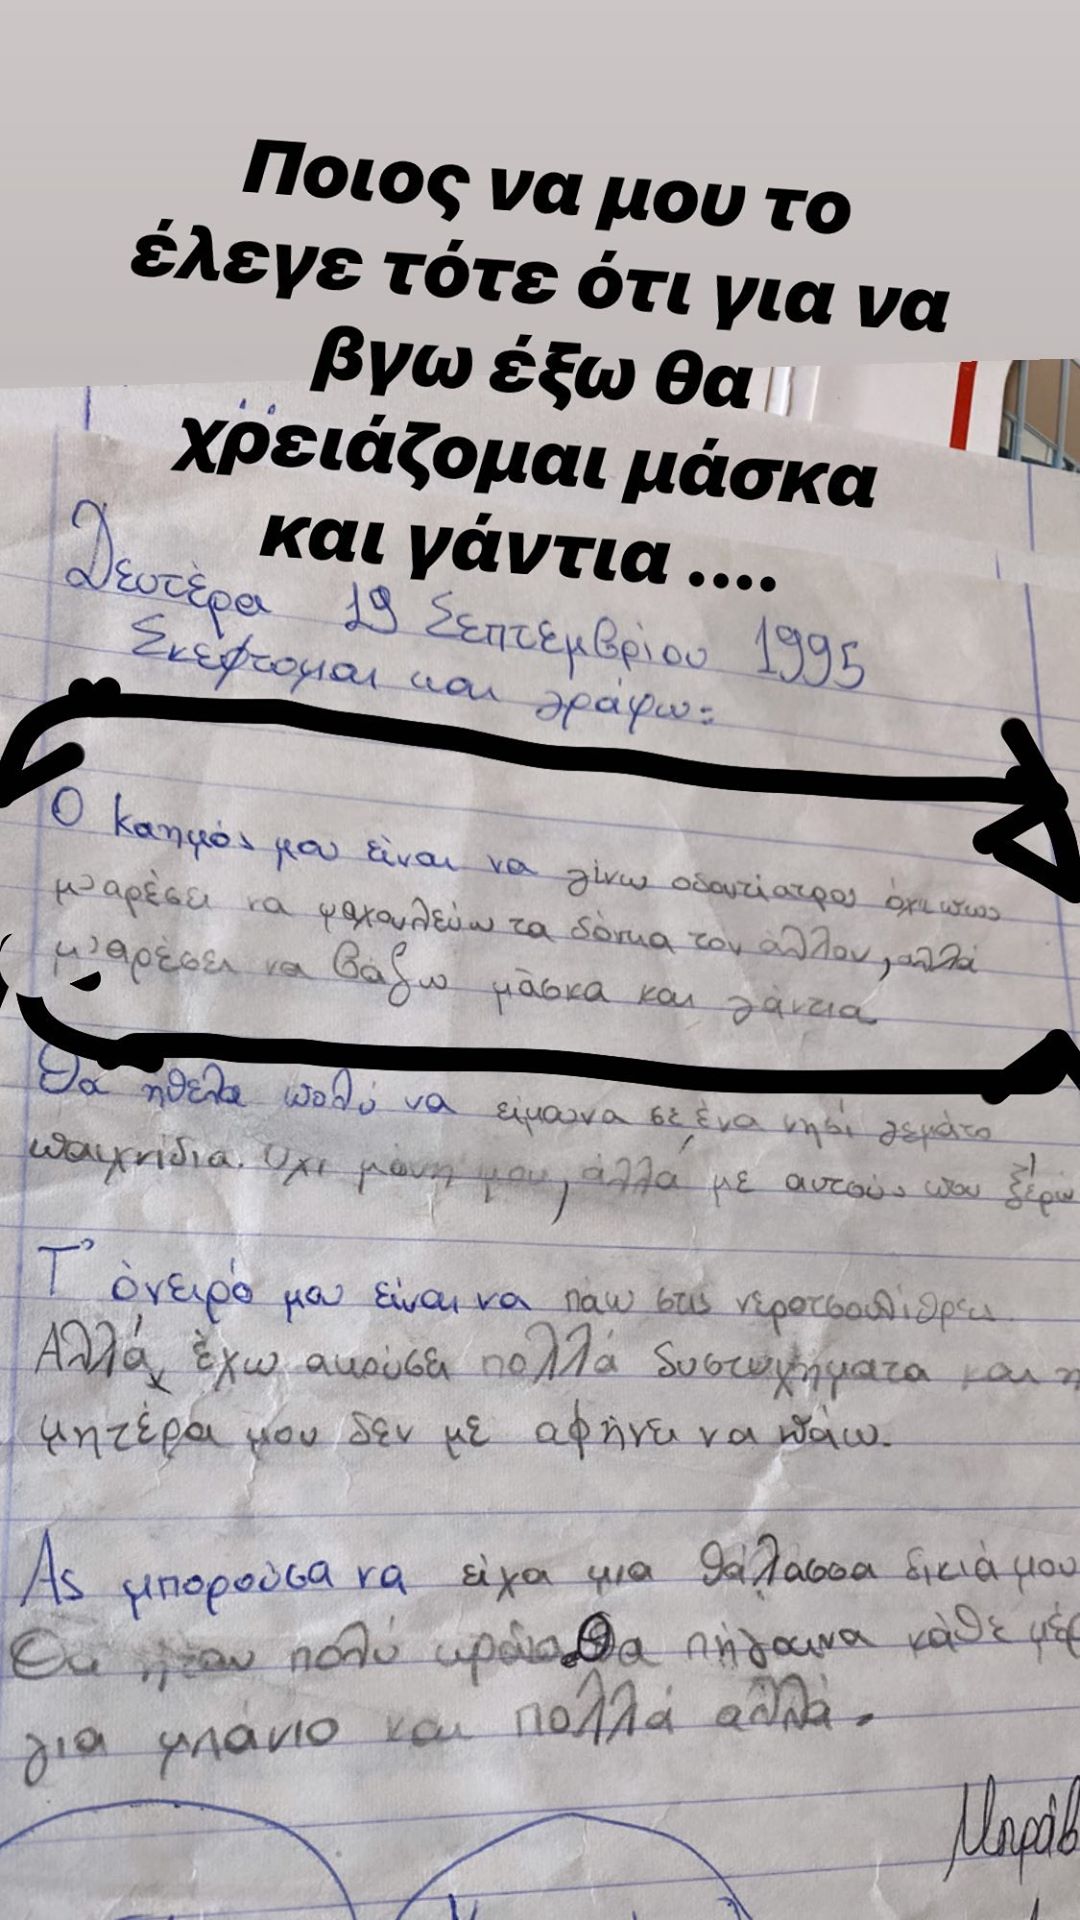 Ποιος να μου το
έλεγε τότε ότι για να
βγω έξω θα
χρειάζομαι μάσκα
και γάντια ....
Δευτέρα 19 Σεπτεμβρίου 1995
Σκέφτομαι και γράφω:
Ο καημός μου είναι να γίνω οδοντίατρος όχι πως
μ'αρέσει να ψαχουλεύω τα δόντια τον άλλον, αλλά
μ'αρέσει να βάζω μάσκα και γάντια
Θα ήθελα πολύ να είμουνα σε ένα νησί γεμάτο
παιχνίδια. Όχι μόνη μου, αλλά με αυτούς που ξέρω
Τ' όνειρό μου είναι να πάω στις νεροτσουλίθρες
Αλλά, έχω ακούσει πολλά δυστυχήματα και η
μητέρα μου δεν με αφήνει να πάω.
Ας μπορούσα να είχα μια θάλασσα δικιά μου
Θα ήταν πολύ ωραία. Θα πήγαινα κάθε μέρ
για μπάνιο και πολλά αλλά.
Μπράβ